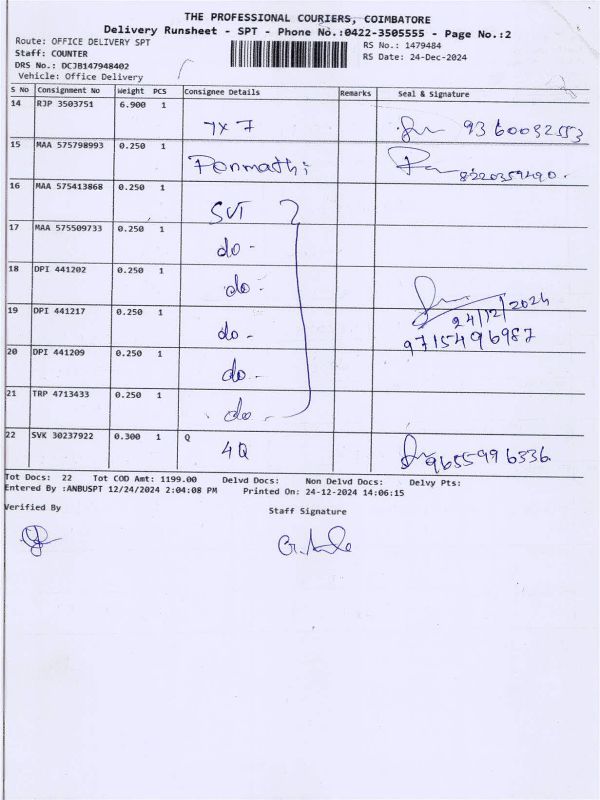 THE PROFESSIONAL COURIERS, COIMBATORE
Delivery Runsheet - SPT - Phone No.:0422-3505555 - Page No.:2
Route: OFFICE DELIVERY SPT
RS No.: 1479484
Staff: COUNTER
RS Date: 24-Dec-2024
DRS No.: DCJB147948402
Vehicle: Office Delivery
S No Consignment No Weight PCS Consignee Details Remarks Seal & Signature
14 RJP 3503751 6.900 1
7x7 9360032553
15 MAA 575798993 0.250 1
Ponmathi 8220359490.
16 MAA 575413868 0.250 1
SVT
17 MAA 575509733 0.250 1
do -
18 DPI 441202 0.250 1
do -
24/12/2024
19 DPI 441217 0.250 1
do - 9715496987
20 DPI 441209 0.250 1
do -
21 TRP 4713433 0.250 1
do -
22 SVK 30237922 0.300 1 Q
4Q 9655996336
Tot Docs: 22 Tot COD Amt: 1199.00 Delvd Docs: Non Delvd Docs: Delvy Pts:
Entered By :ANBUSPT 12/24/2024 2:04:08 PM Printed On: 24-12-2024 14:06:15
Verified By
Staff Signature